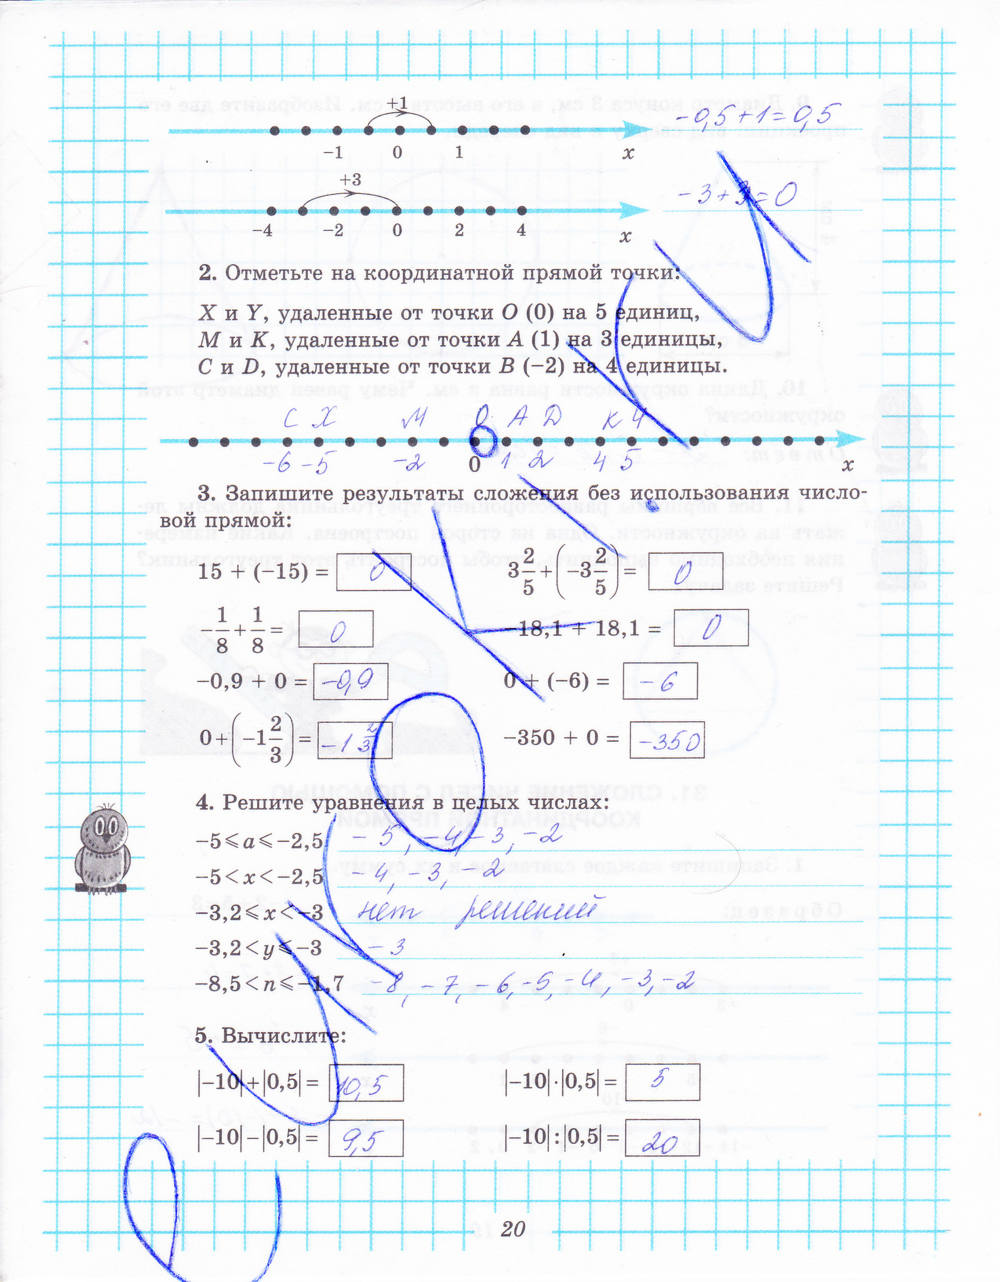 +1
-0,5+1=0,5
−1 0 1 x
+3
-3+3=0
−4 −2 0 2 4 x
2. Отметьте на координатной прямой точки:
X и Y, удаленные от точки O (0) на 5 единиц,
M и K, удаленные от точки A (1) на 3 единицы,
C и D, удаленные от точки B (−2) на 4 единицы.
C X M O A D K Y
-6 -5 -2 0 1 2 4 5 x
3. Запишите результаты сложения без использования число-
вой прямой:
15 + (−15) = 0 3 2/5 + (−3 2/5) = 0
−1/8 + 1/8 = 0 −18,1 + 18,1 = 0
−0,9 + 0 = -0,9 0 + (−6) = -6
0 + (−1 2/3) = -1 2/3 −350 + 0 = -350
4. Решите уравнения в целых числах:
−5 ⩽ a ⩽ −2,5 -5, -4, -3, -2
−5 < x < −2,5 -4, -3, -2
−3,2 ⩽ x < −3 нет решений
−3,2 < y ⩽ −3 -3
−8,5 < n ⩽ −1,7 -8, -7, -6, -5, -4, -3, -2
5. Вычислите:
|−10| + |0,5| = 10,5 |−10| · |0,5| = 5
|−10| − |0,5| = 9,5 |−10| : |0,5| = 20
20